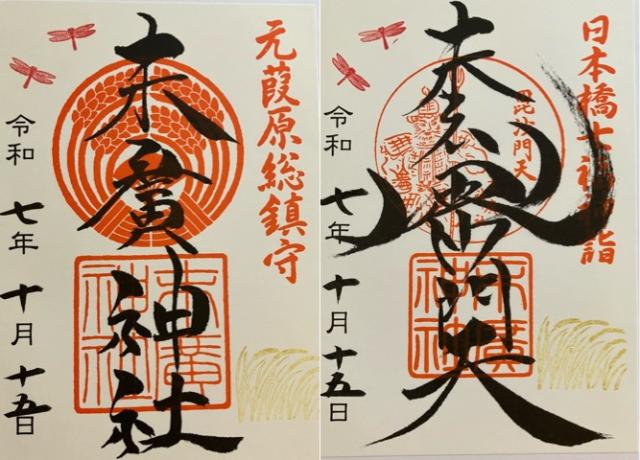 元葭原総鎮守
末廣神社
末廣
神社
令和七年十月十五日
日本橋七福神詣
毘沙門天
末廣
神社
令和七年十月十五日